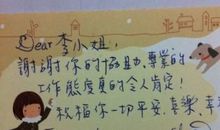 Dear 李小姐,
謝謝你的協助,專業的
工作態度真的令人肯定!
祝福你一切平安,喜樂,幸